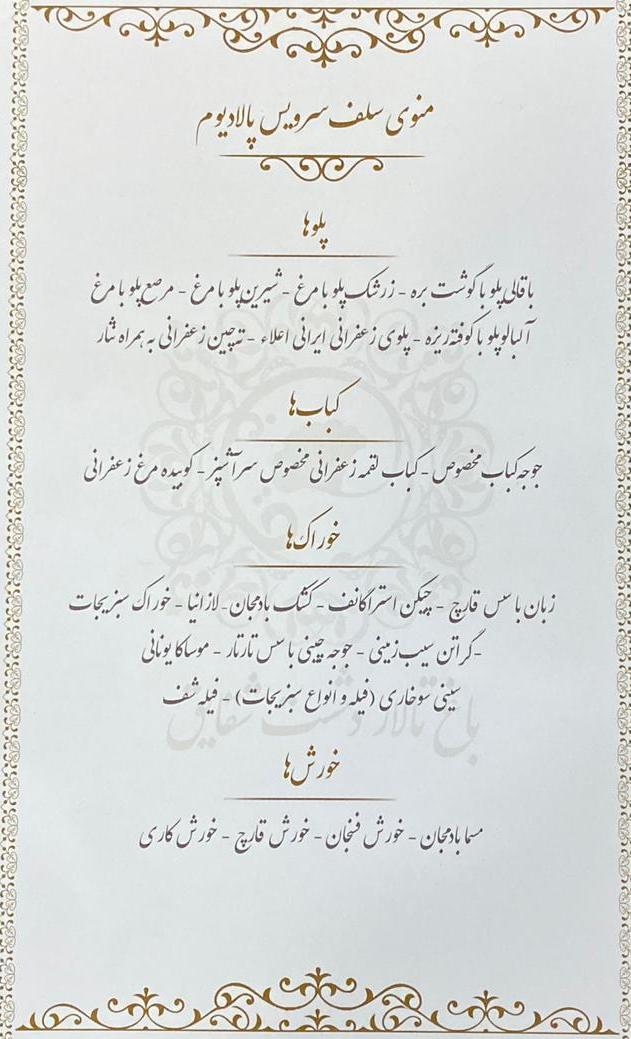 منوی سلف سرویس پالادیوم
پلوها
باقالی پلو با گوشت بره - زرشک پلو با مرغ - شیرین پلو با مرغ - مرصع پلو با مرغ
آلبالو پلو با کوفته ریزه - پلوی زعفرانی ایرانی اعلاء - ته چین زعفرانی به همراه نثار
کباب‌ها
جوجه کباب مخصوص - کباب لقمه زعفرانی مخصوص سرآشپز - کوبیده مرغ زعفرانی
خوراک‌ها
زبان با سس قارچ - چیکن استراگانف - کشک بادمجان - لازانیا - خوراک سبزیجات
- گراتن سیب زمینی - جوجه چینی با سس تارتار - موساکا یونانی
سینی سوخاری (فیله و انواع سبزیجات) - فیله شف
باغ تالار دشت شقایق
خورش‌ها
مسما بادمجان - خورش فنجان - خورش قارچ - خورش کاری